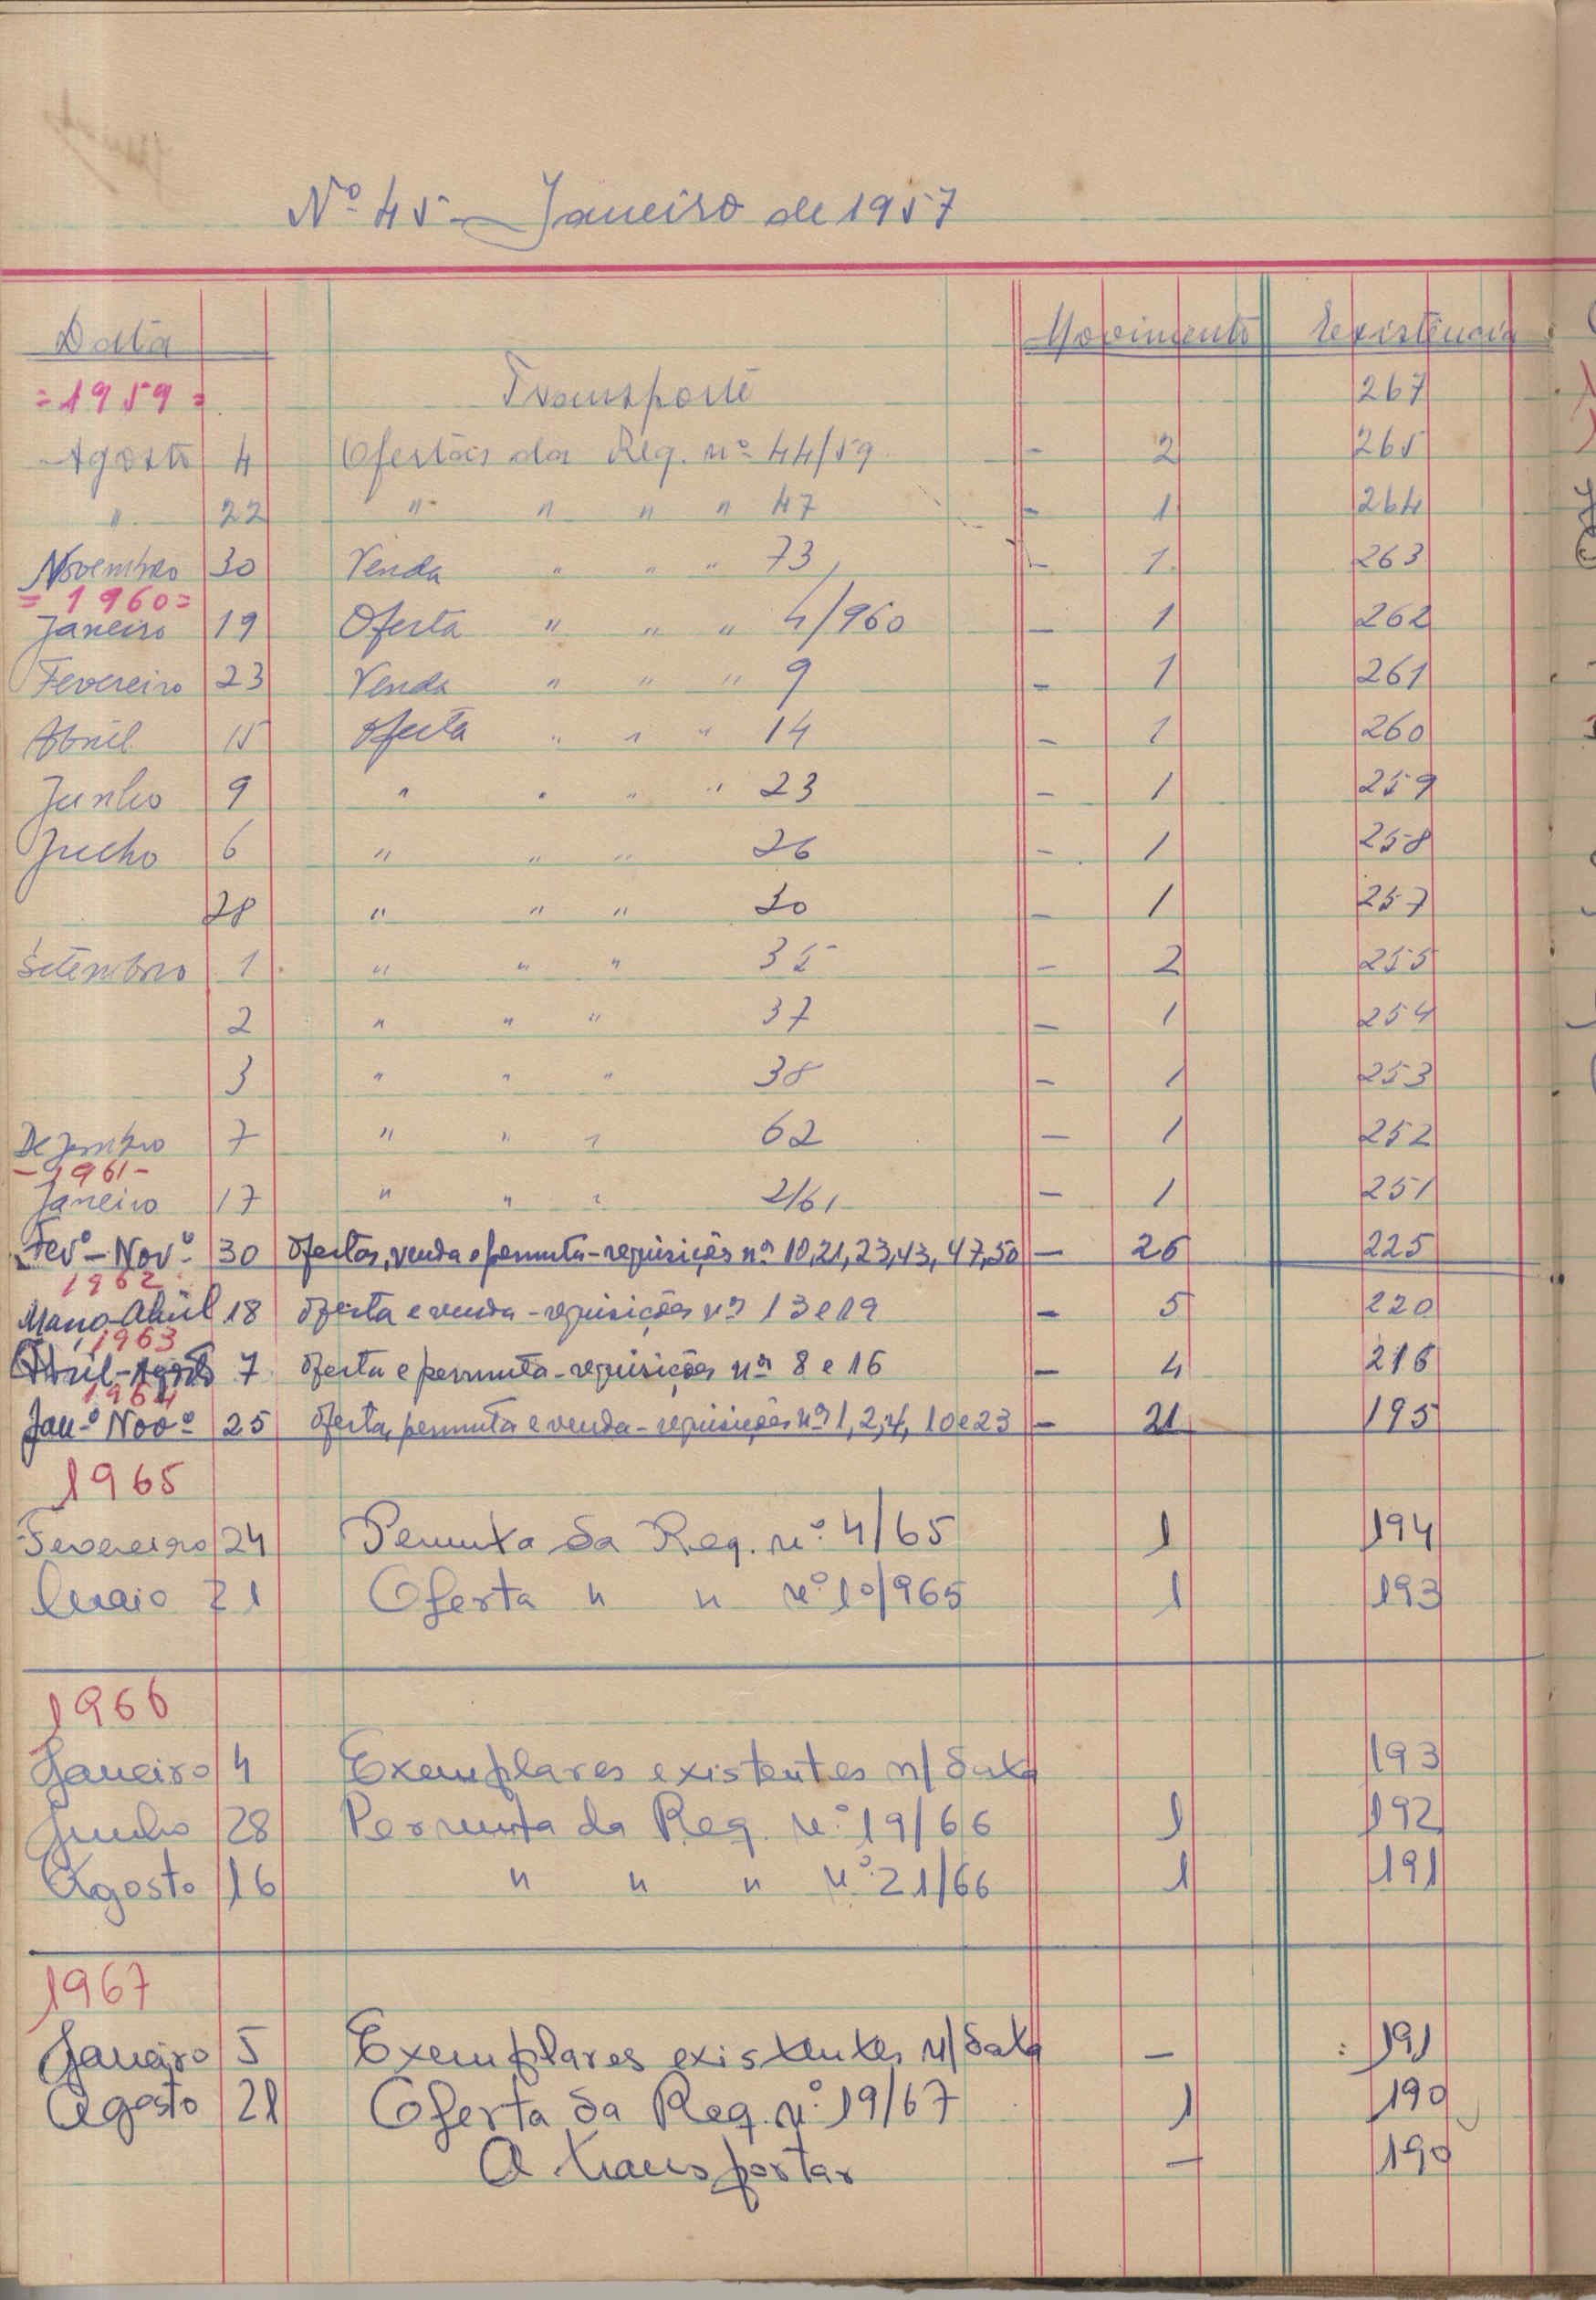 Nº 45 - Janeiro de 1957
Data Movimento Existência
=1959= Transporte 267
Agosto 4 Ofertas da Req. nº 44/59 - 2 265
" 22 " " " " 47 - 1 264
Novembro 30 Venda " " " 73 - 1 263
=1960=
Janeiro 19 Oferta " " " 4/960 - 1 262
Fevereiro 23 Venda " " " 9 - 1 261
Abril 15 Oferta " " " 14 - 1 260
Junho 9 " " " " 23 - 1 259
Julho 6 " " " 26 - 1 258
28 " " " 30 - 1 257
Setembro 1 " " " 35 - 2 255
2 " " " 37 - 1 254
3 " " " 38 - 1 253
Dezembro 7 " " " 62 - 1 252
-1961-
Janeiro 17 " " " 2/61 - 1 251
Fevº-Novº 30 Ofertas, venda e permuta - requisições nº 10,21,23,43,47,50 - 26 225
1962
Março-Abril 18 Oferta e venda - requisições nº 13 e 19 - 5 220
1963
Abril-Agosto 7 Oferta e permuta - requisições nº 8 e 16 - 4 216
1964
Janº Novº 25 Oferta, permuta e venda - requisições nº 1, 2, 4, 10 e 23 - 21 195
1965
Fevereiro 24 Permuta da Req. nº 4/65 1 194
Maio 21 Oferta " " nº 10/965 1 193
1966
Janeiro 4 Exemplares existentes n/data 193
Junho 28 Permuta da Req. nº 19/66 1 192
Agosto 16 " " " nº 21/66 1 191
1967
Janeiro 5 Exemplares existentes n/data - 191
Agosto 21 Oferta da Req. nº 19/67 1 190
A transportar - 190